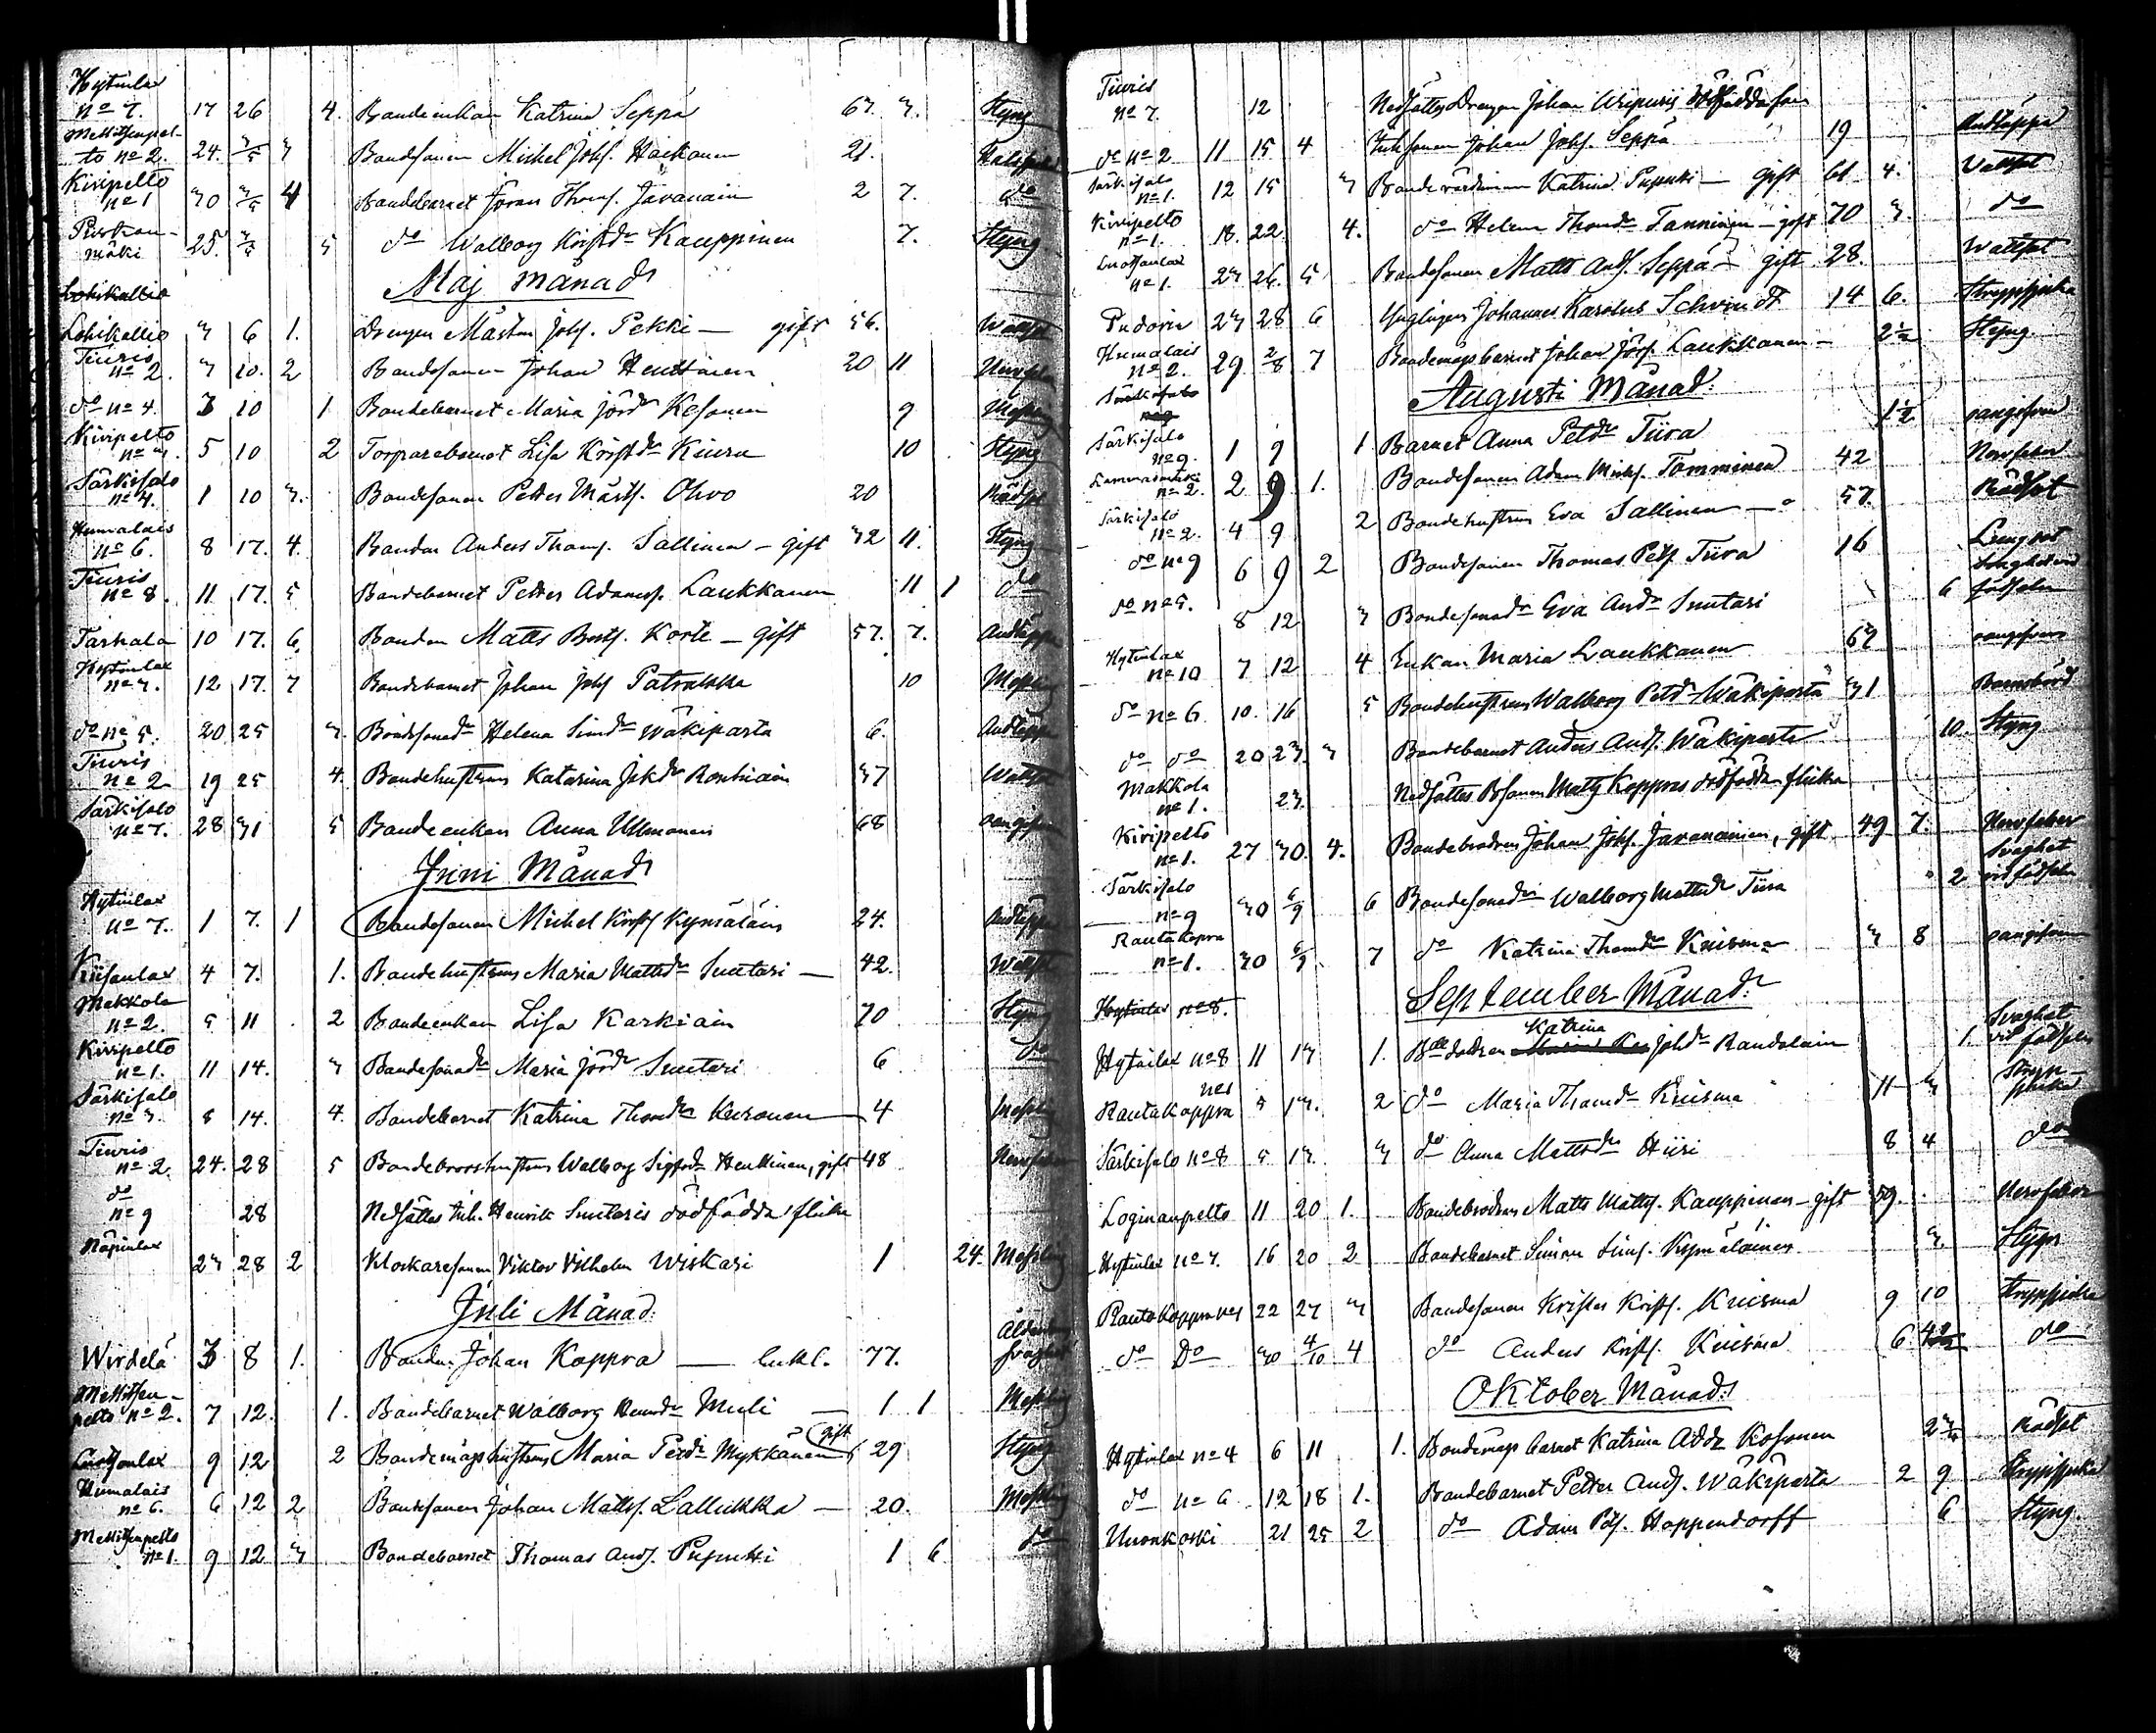 Hytinlax
no 7. 17 26 4. Bondeenkan Katrina Seppä 67. 3. Styng
to no 2. 24. 3/5 3 Bondsonen Michel Johs. Haikanen 21.
Kiripelto
no 1 30 3/5 4 Bondebarnet Thoms. Javanain 2 7. do
mäki 25. 3/5 5 do Walborg Kristdr Kauppinen 7. Styng
Maj månad
Lohikallio
Lohikallio 3 6 1. Drengen Mårten Johs. Pekki — gift 56. Wattsot
Tiuris
no 2. 3 10. 2 Bondsonen Johan Henttinen 20 11
do no 4. 3 10 1 Bondebarnet Maria Jördr Kosonen 9 Messling
Kiripelto
no 3. 5 10 2 Torparebarnet Lisa Kristdr Kiuru 10 Styng
Särkisalo
1 10 3. Bondesonen Petter Mårts. Ohvo 20 Rödsot
Humalais
no 6. 8 17. 4. Bonden Anders Thoms. Sallinen — gift 32 11. Styng
Tiuris
no 8. 11 17. 5 Bondebarnet Petter Adams. Laukkanen 11 1 do
Tarkala 10 17. 6. Bonden Matts Korte — gift 57. 7. Andtäppa
Hytinlax
12 17. 7 Bondebarnet Johan Johs Patrakka 10 Messling
do no 5. 20 25 3. Bondsonadr Helena Simdr Wäkiparta 6. Andtäppa
Tiuris
no 2 19 25 4. Bondehustrun Katarina 37 Wattsot
Särkisalo
no 7. 28 31 5 Bondeenkan Anna Ullmanen 68 oangifven
Juni Månad
Hytinlax
no 7. 1 7. 1 Bondesonen Michel Krists Kymäläin 24. Andtäppa
4 7. 1. Bondehustrun Maria Mattsdr Suutari — 42. Wattsot
Makkola
no 2. 5 11 2 Bondeenkan Lisa Karkiain 70 Styng
Kiripelto
no 1. 11 14. 3 Bondesonadr Maria Jördr Suutari 6 do
Särkisalo
no 3. 8 14. 4. Bondebarnet Katrina Thomdr Kuronen 4 Messling
Tiuris
no 2. 24. 28 5 Walborg Henttinen, gift 48 Nervfeber
do
no 9 28 Nedsattes Inh. Henrik Suutaris dödfödda flicka
23 28 2 Klockaresonen Viktor Vilhelm Wiskari 1 24. Messling
Juli Månad
Wirdelä 3 8 1. Bonden Johan Koppra — enkl. 77. Ålderdoms svaghet
pelto no 2. 7 12. 1. Bondebarnet Walborg Henrdr Muli — 1 1 Messling
9 12 2 Bondemågshustrun Maria Petdr Mykkänen gift 29 Styng
Humalais
no 6. 6 12 2 Bondesonen Johan Matts. Lallukka — 20. Messling
no 1. 9 12 3 Bondebarnet Thomas Ands. Puputti 1 6 do
Tiuris
no 7. 12 Nedsattes Drengen Johan dödfödda son
do no 2 11 15 4 Inhsonen Johan Johs. Seppä 19 Andtäppa
Särkisalo
no 1. 12 15 3 Bondevärdinnan Katrina Puputti — gift 61 4. Wattsot
Kiripelto
no 1. 18. 22. 4. do Helena Thomdr Tanninen — gift 70 3. do
no 1. 23 26. 5 Bondesonen Matts Ands. Seppä — gift 28. Wattsot
Pudoria 23 28 6 Ynglingen Johannes Karolus Schvindt 14 6. Strypsjuka
Humalais
no 2. 29 2/8 7 Bondemågsbarnet Johan Jörs. Laukkanen — 2 1/2 Styng
Särkisalo
no 9
Augusti Månad.
Särkisalo
no 9. 1 9 1 Barnet Anna Petdr Tiira 1 1/2 oangifven
no 2. 2 9 1. Bondesonen Adam Michs. Tomminen 42 Nervfeber
Särkisalo
no 2. 4 9 2 Bondehustrun Eva Sallinen — 57. Rödsot
do no 9 6 9 2 Bondesonen Thomas Pets Tiira 16 Lungsot
do no 5. 8 12 3 Bondesonadr Eva Andr Suutari 6 Svaghet vid födseln
Hytinlax
no 10 7 12 4 Enkan Maria Laukkanen 63 oangifven
do no 6. 10. 16 5 Bondehustrun Walborg Petdr Wäkiparta 31 Barnsbörd
do do 20 23. 3 Bondebarnet Anders Ands. Wäkiparta 10. Styng
Makkola
no 1. 23. Nedsattes Bosonen Matts Koppras dödfödda flicka
Kiripelto
no 1. 27 30. 4. Bondebrodren Johan Johs. Javanainen, gift 49 7. Nervfeber
Särkisalo
no 9 30 6/9 6 Bondesonadr Walborg Mattsdr Tiira 2 Svaghet vid födseln
Rautakopra
no 1. 30 6/9 7 do Katrina Thomdr Kuisma 3 8 oangifven
September Månad.
Hytinlax no 8.
Hytinlax no 8 11 13 1. Bdedottren Katrina Johdr Randalain 1. Svaghet vid födseln
no 1
Rautakoppra 5 13. 2 do Maria Thomdr Kuisma 11 3 Strypsjuka
Särkisalo no 8 5 13. 3 do Anna Mattsdr Hiiri 8 4 do
Loginanpelto 11 20 1. Bondebrodren Matts Matts. Kauppinen — gift 59. Nervfeber
Hytinlax no 7. 16 20 2 Bondebarnet Simon Sims. Kymäläinen 3. Styng
Rautakoppra no 1 22 27 3 Bondesonen Krister Krists. Kuisma 9 10 Strypsjuka
do Do 30 4/10 4 do Anders Krists. Kuisma 6 do
Oktober Månad.
Hytinlax no 4 6 11 1. Bondemågsbarnet Katrina Addr Kosonen Rödsot
do no 6 12 18 1. Bondebarnet Petter Ands. Wäkiparta 2 9 Strypsjuka
Unonkoski 21 25 2 do Adam Pets. Hoppendorff 6 Styng.